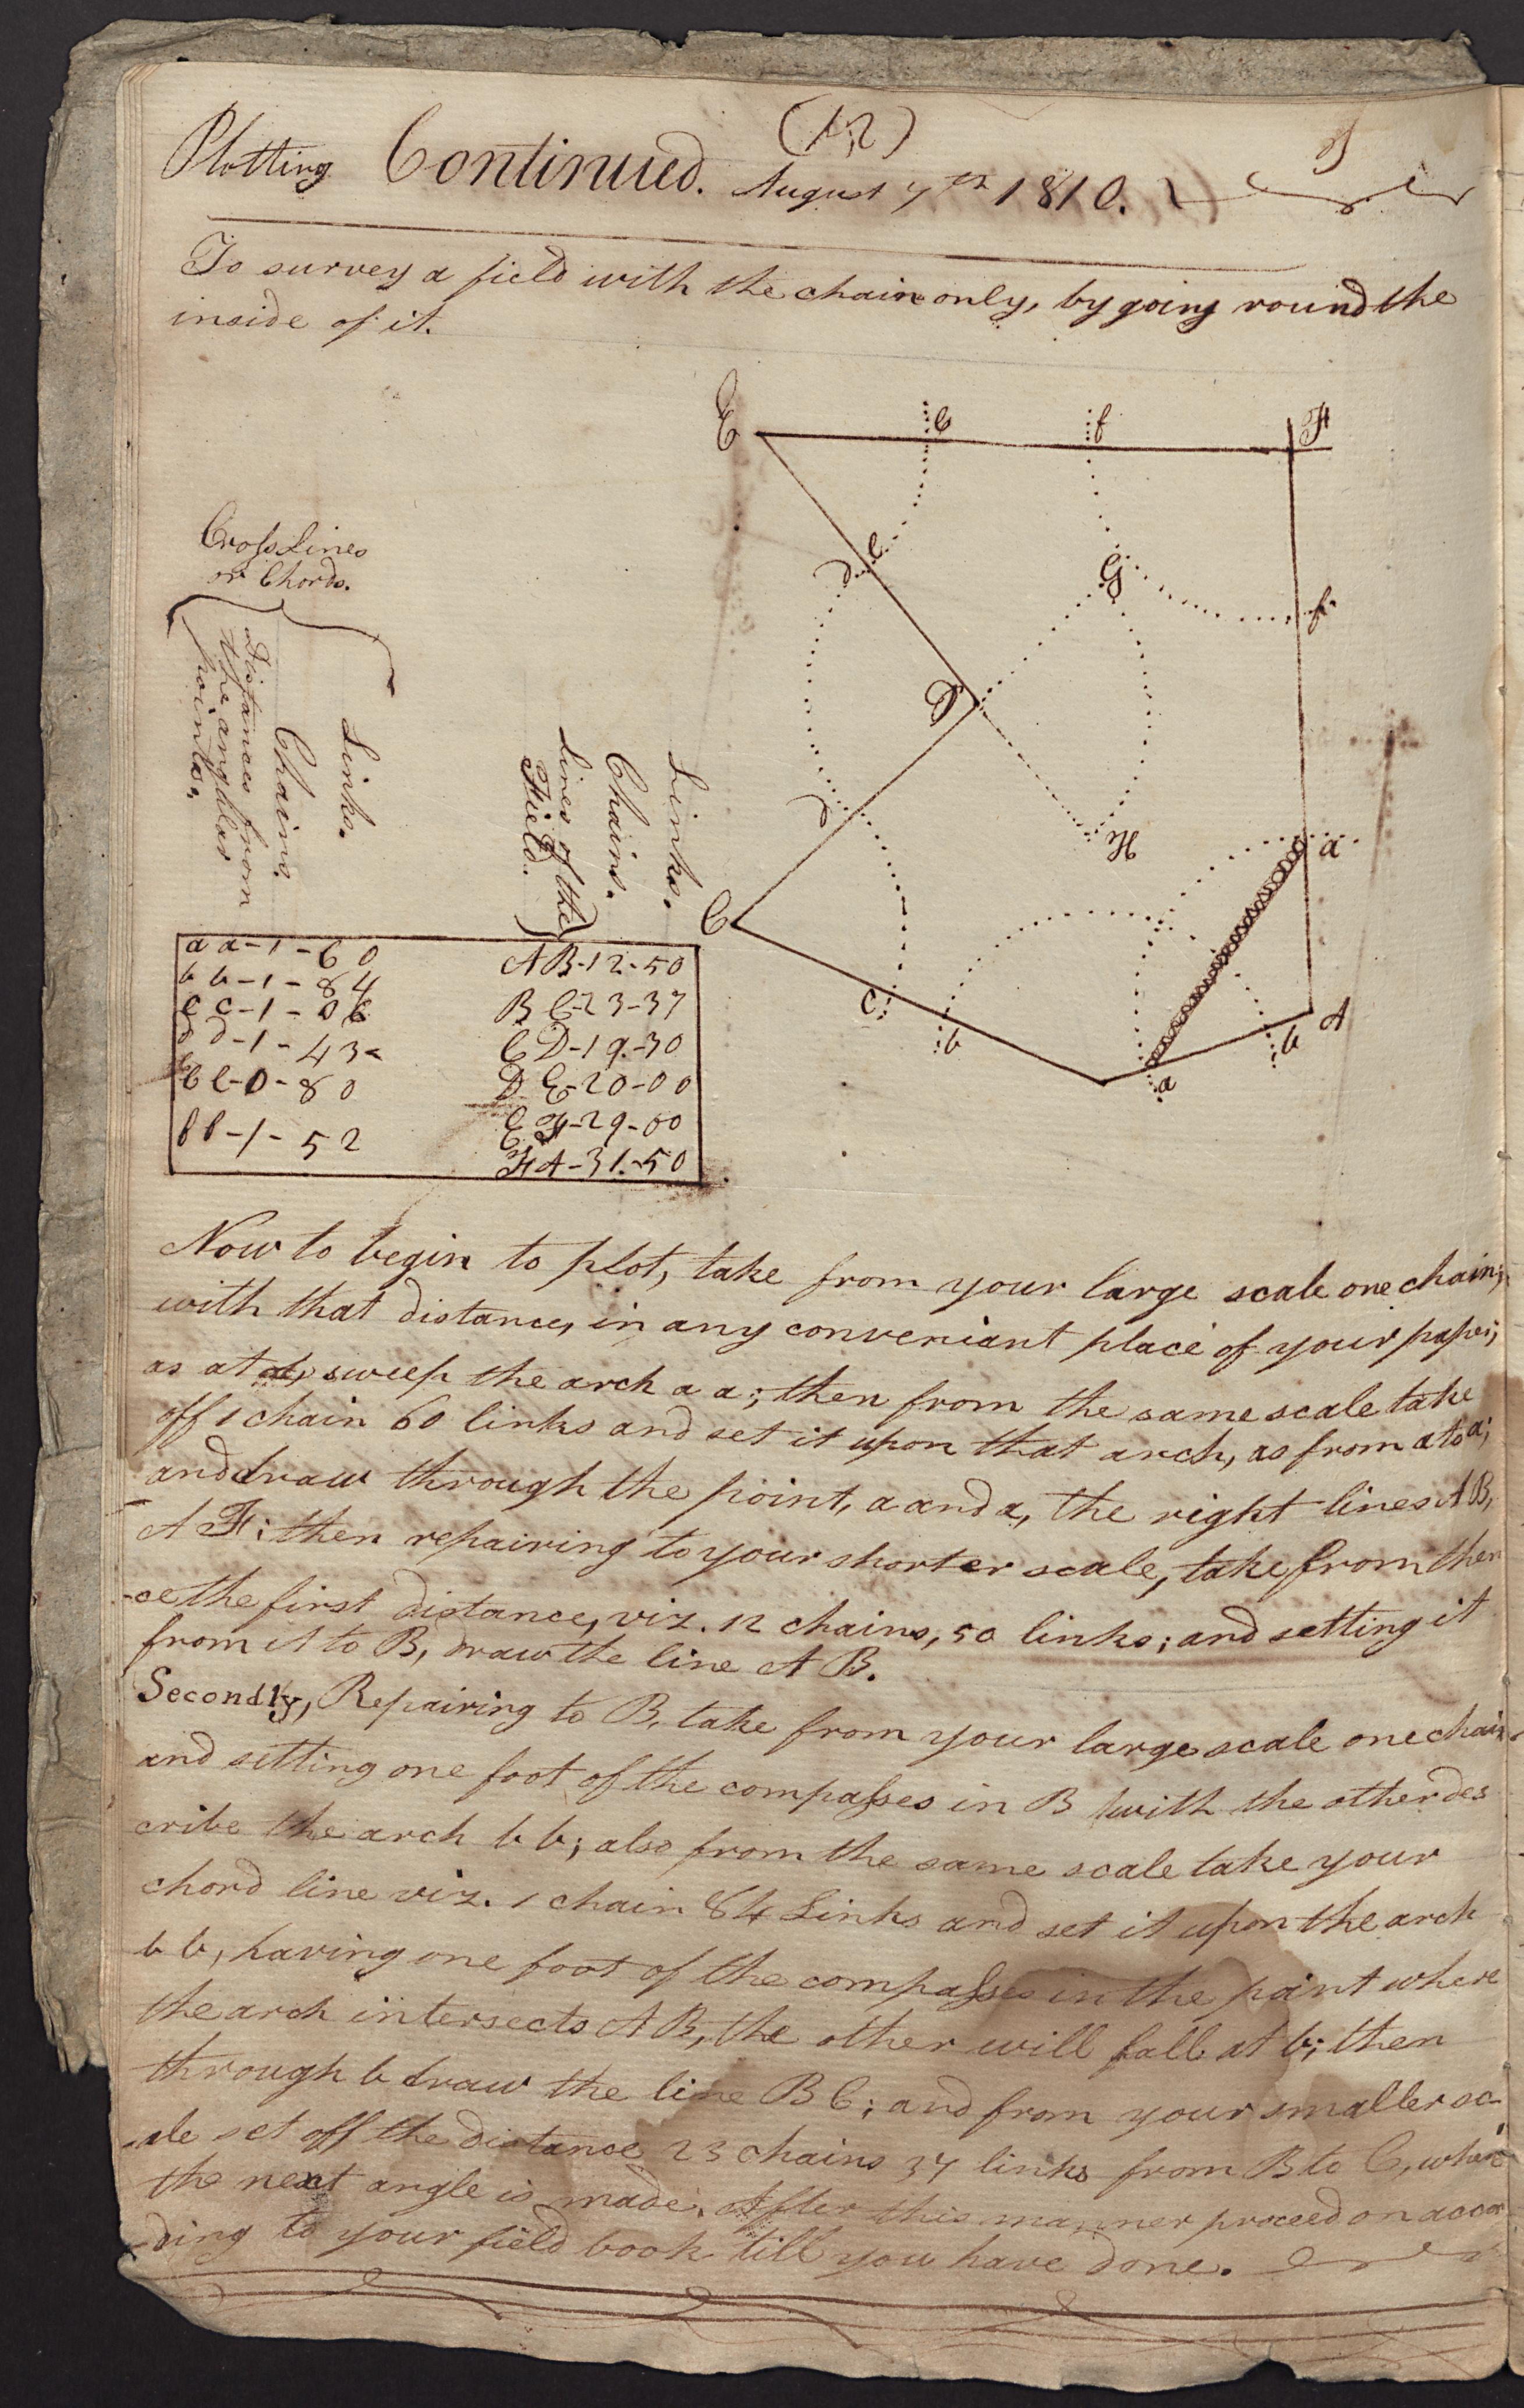 (12)
Plotting Continued. August 7th 1810.
To survey a field with the chain only, by going round the
inside of it.
E
e
f
F
Cross Lines
or Chords.
Distances from
the angular
points.
Chains.
Links.
Lines of the
Field.
Chains.
Links.
d
e
G
f
D
d
H
a
C
c
b
a
b
A
a a - 1 - 60
b b - 1 - 84
c c - 1 - 06
d d - 1 - 43
e e - 0 - 80
f f - 1 - 52
A B - 12 - 50
B C - 23 - 37
C D - 19 - 30
D E - 20 - 00
E F - 29 - 00
F A - 31 - 50
Now to begin to plot, take from your large scale one chain;
with that distance, in any conveniant place of your paper;
as at sweep the arch a a; then from the same scale take
off 1 chain 60 links and set it upon that arch, as from a to a;
and draw through the point, a and a, the right lines A B,
A F: then repairing to your shorter scale, take from then
-ce the first distance, viz. 12 chains, 50 links; and setting it
from A to B, draw the line A B.
Secondly, Repairing to B, take from your large scale one chain
and setting one foot of the compasses in B with the other des
cribe the arch b b; also from the same scale take your
chord line viz. 1 chain 84 Links and set it upon the arch
b b, having one foot of the compasses in the point where
the arch intersects A B, the other will fall at b; then
through b draw the line B C; and from your smaller sc-
-ale set off the distance 23 chains 37 links from B to C, where
the next angle is made. After this manner proceed on accor
-ding to your field book till you have done.